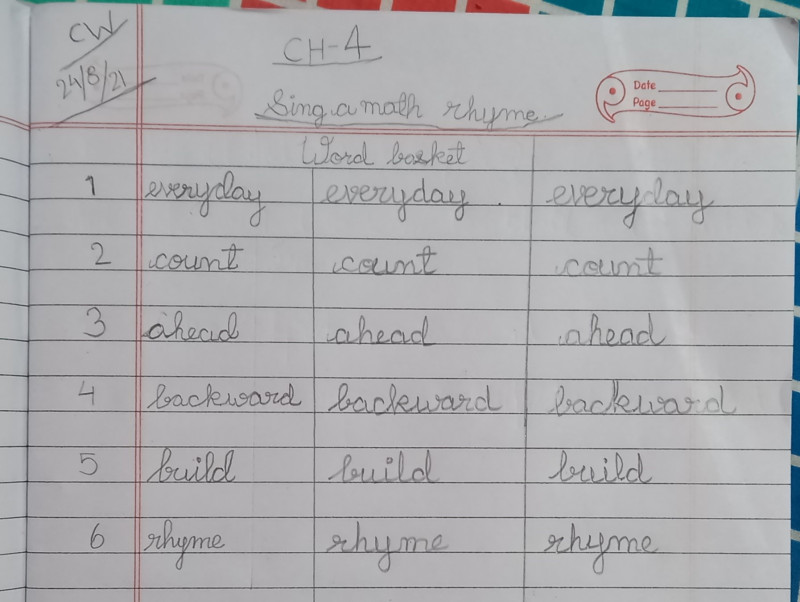 CW
24/8/21
CH-4
Sing a math rhyme
Date
Page
Word basket
1 everyday everyday everyday
2 count count count
3 ahead ahead ahead
4 backward backward backward
5 build build build
6 rhyme rhyme rhyme